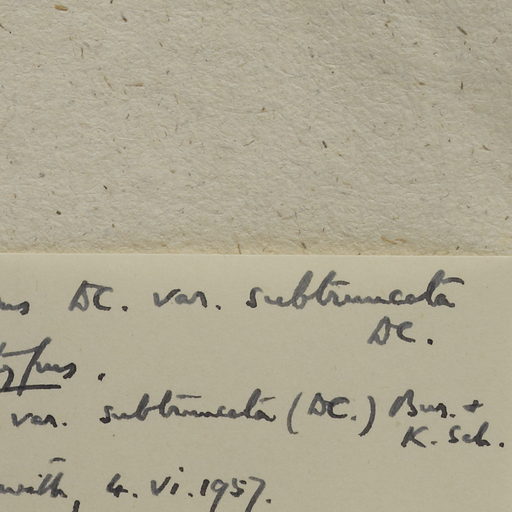 DC. var. subtruncata
DC.
var. subtruncata (DC.) Bur. +
K. Sch.
4. vi. 1957.